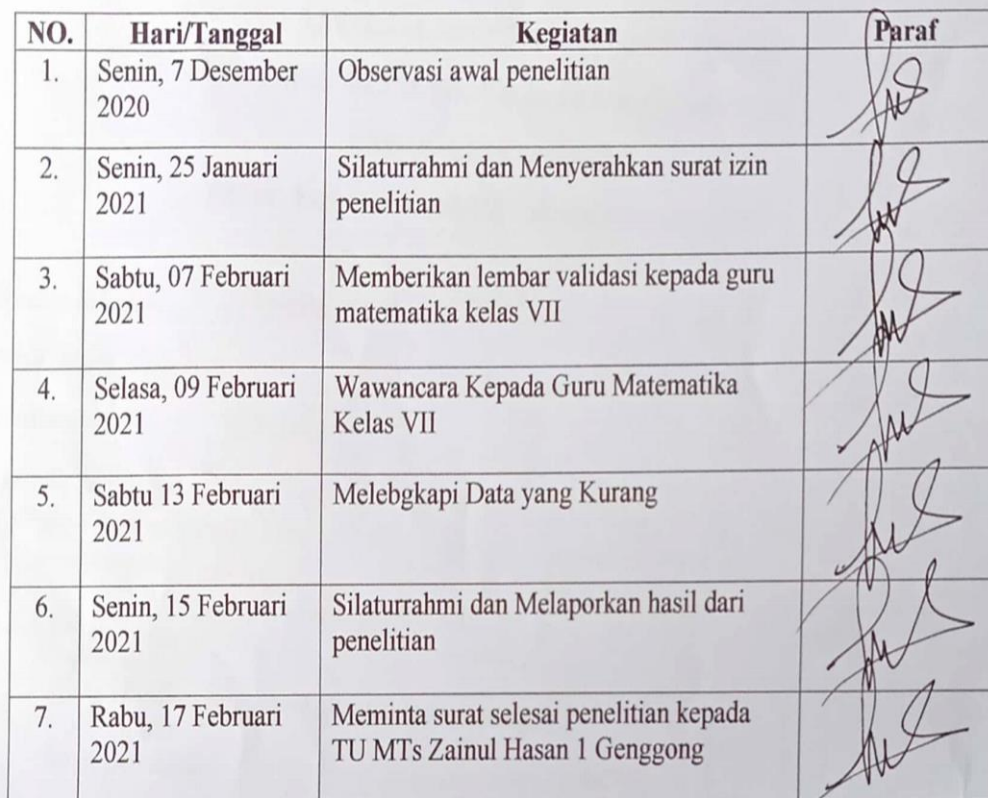 NO. Hari/Tanggal Kegiatan Paraf
1. Senin, 7 Desember Observasi awal penelitian
2020
2. Senin, 25 Januari Silaturrahmi dan Menyerahkan surat izin
2021 penelitian
3. Sabtu, 07 Februari Memberikan lembar validasi kepada guru
2021 matematika kelas VII
4. Selasa, 09 Februari Wawancara Kepada Guru Matematika
2021 Kelas VII
5. Sabtu 13 Februari Melebgkapi Data yang Kurang
2021
6. Senin, 15 Februari Silaturrahmi dan Melaporkan hasil dari
2021 penelitian
7. Rabu, 17 Februari Meminta surat selesai penelitian kepada
2021 TU MTs Zainul Hasan 1 Genggong